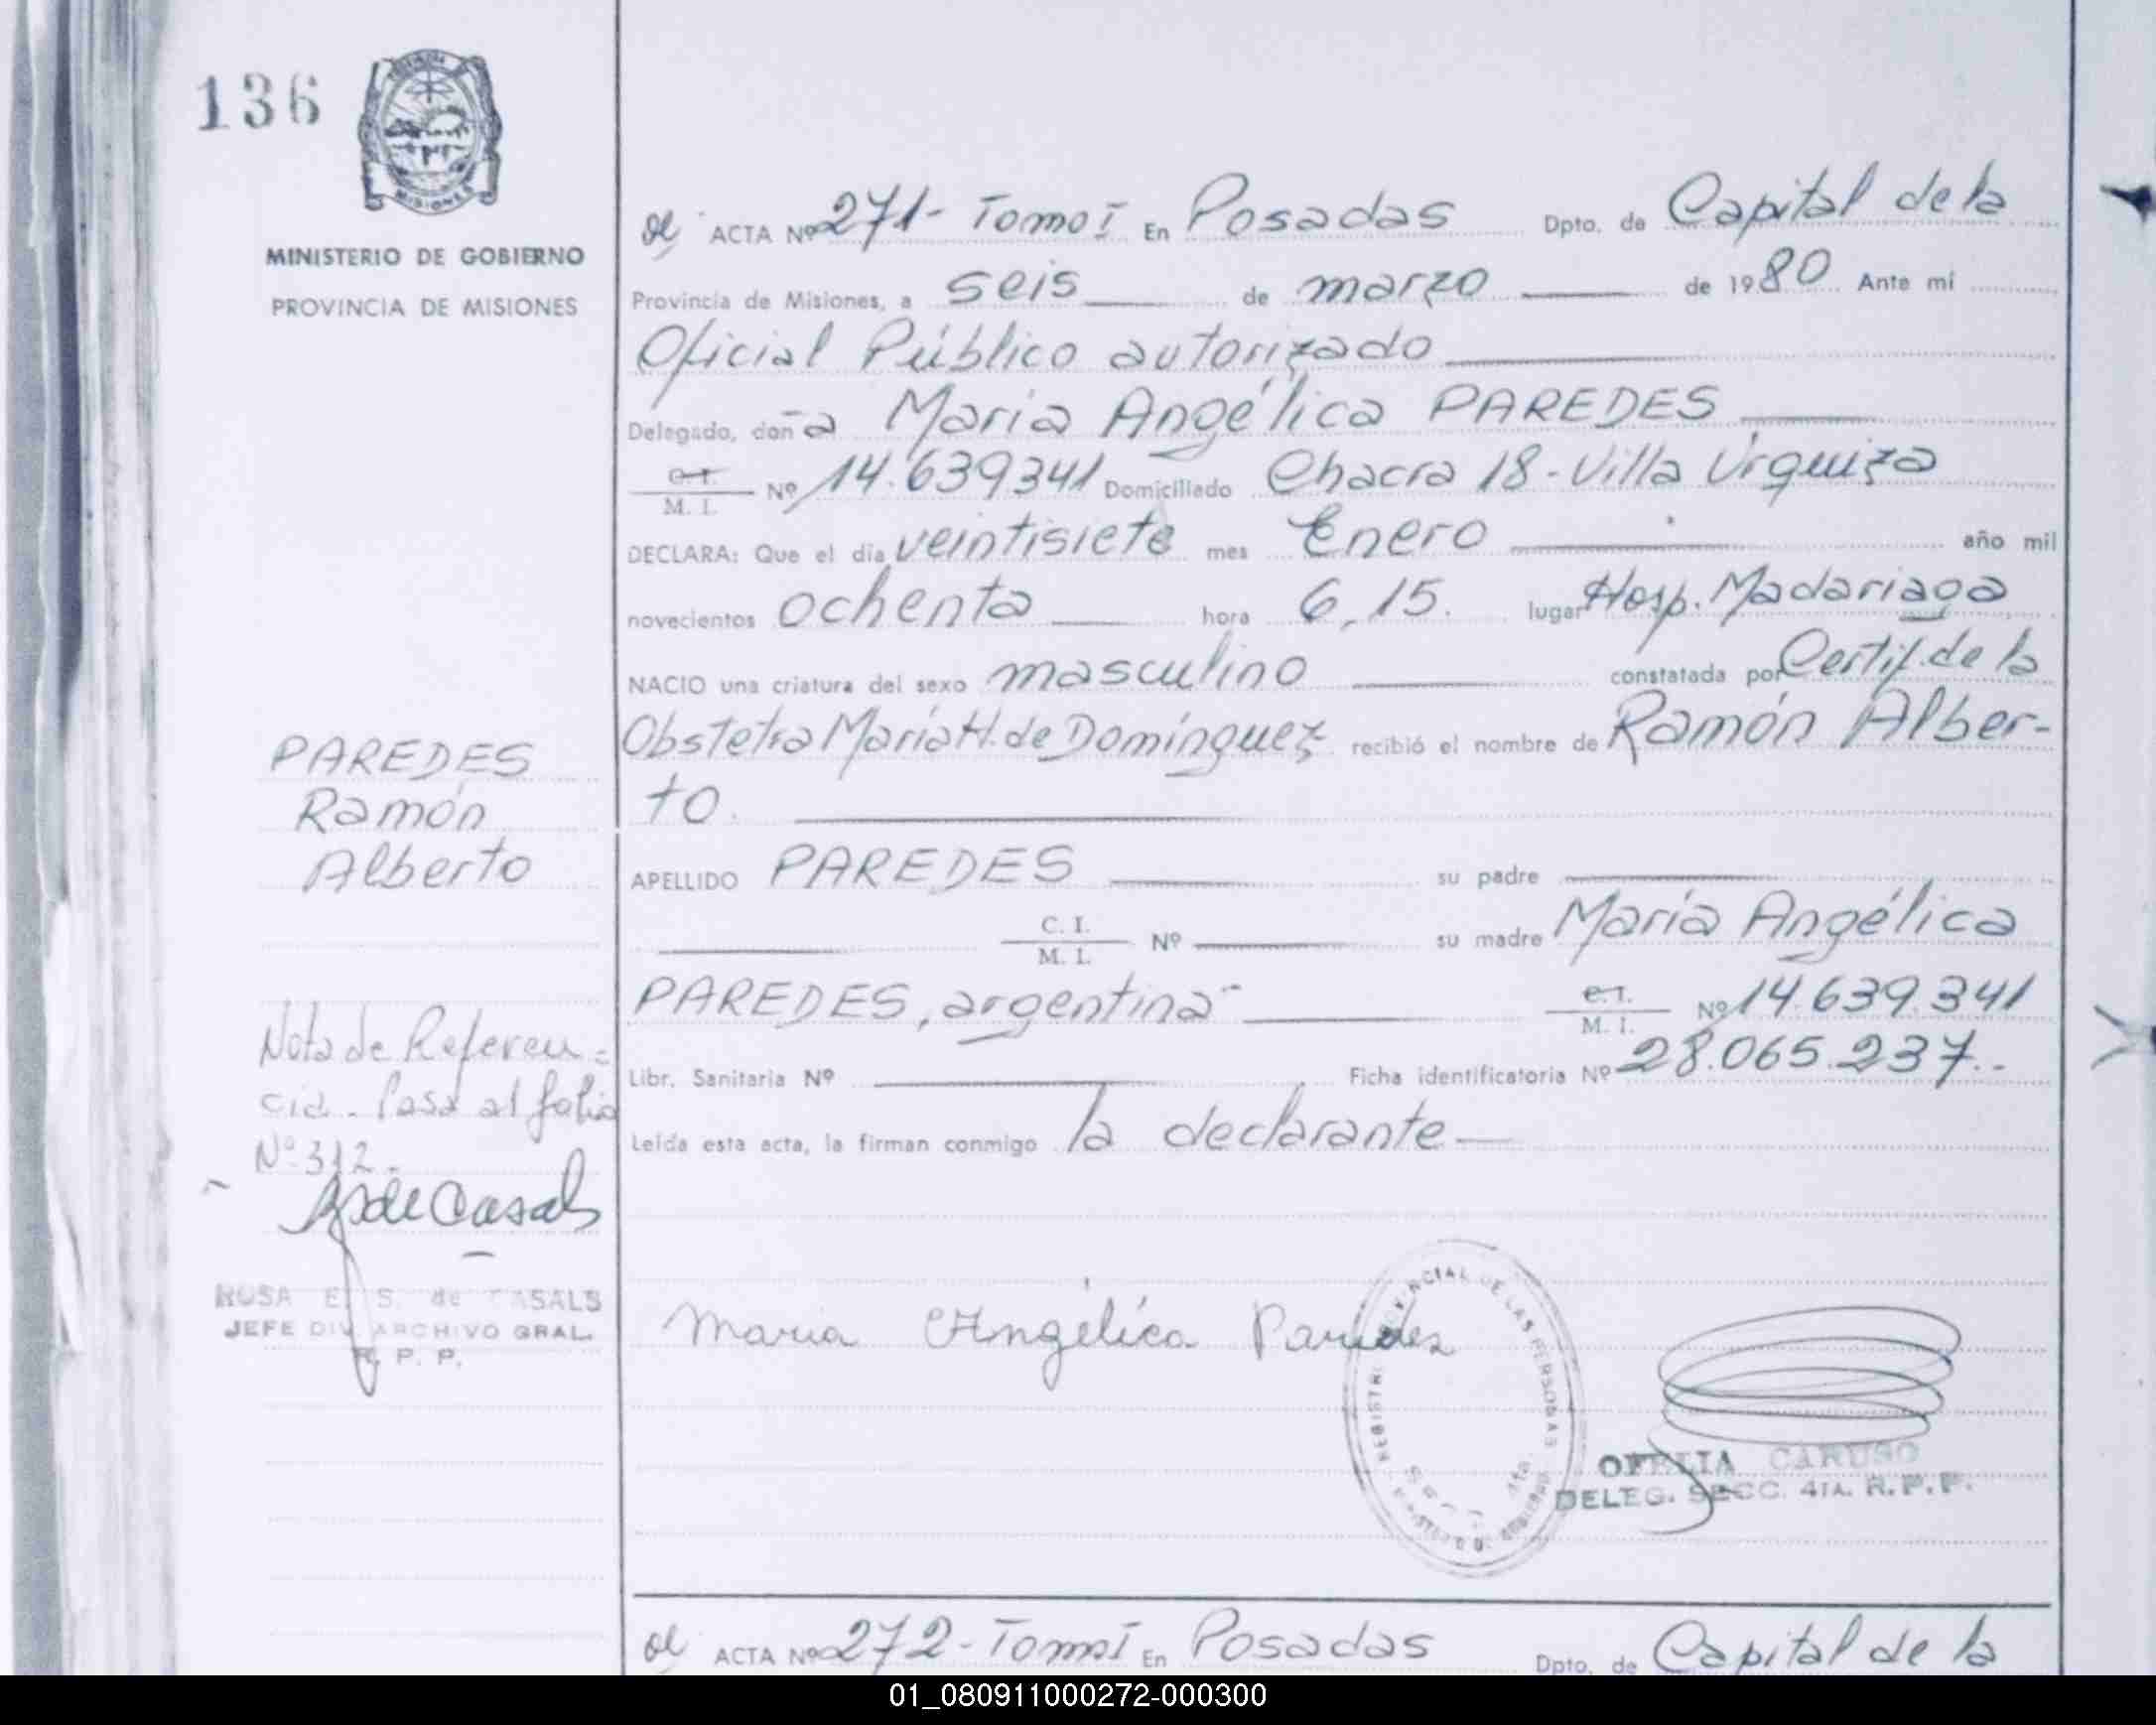 136
MISIONES
MINISTERIO DE GOBIERNO
PROVINCIA DE MISIONES
ACTA Nº 271- Tomo I En Posadas Dpto. de Capital de la
Provincia de Misiones, a seis de marzo de 1980 Ante mí
Oficial Público autorizado
Delegado, doña María Angélica PAREDES
C.I.
M. I. Nº 14.639341 Domiciliado Chacra 18 - Villa Urquiza
DECLARA: Que el día veintisiete mes Enero año mil
novecientos ochenta hora 6,15. lugar Hosp. Madariaga
NACIO una criatura del sexo masculino constatada por Certif. de la
Obstetra María H. de Domínguez recibió el nombre de Ramón Alber-
to.
PAREDES
Ramón
Alberto
APELLIDO PAREDES su padre
C. I.
M. I. Nº su madre María Angélica
PAREDES, argentina
C.I.
M. I. Nº 14.639.341
Libr. Sanitaria Nº Ficha identificatoria Nº 28.065.237.-
Leída esta acta, la firman conmigo la declarante
Nota de Referen=
cia. Pasa al folio
Nº 312.
de Casals
ROSA E. S. de CASALS
JEFE DIV. ARCHIVO GRAL.
R. P. P.
Maria Angélica Paredes
REGISTRO PROVINCIAL DE LAS PERSONAS
OFELIA CARUSO
DELEG. SECC. 4TA. R.P.P.
ACTA Nº 272 - Tomo I En Posadas Dpto. de Capital de la
01_080911000272-000300